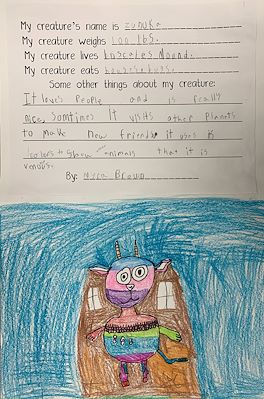 My creature's name is zunuka
My creature weighs 100 lbs.
My creature lives
My creature eats
Some other things about my creature:
It loves People and is really
nice, Somtimes It visits other Planets
to make new friends it uses it
colors to show animals that it is
venuse.
By: Brown